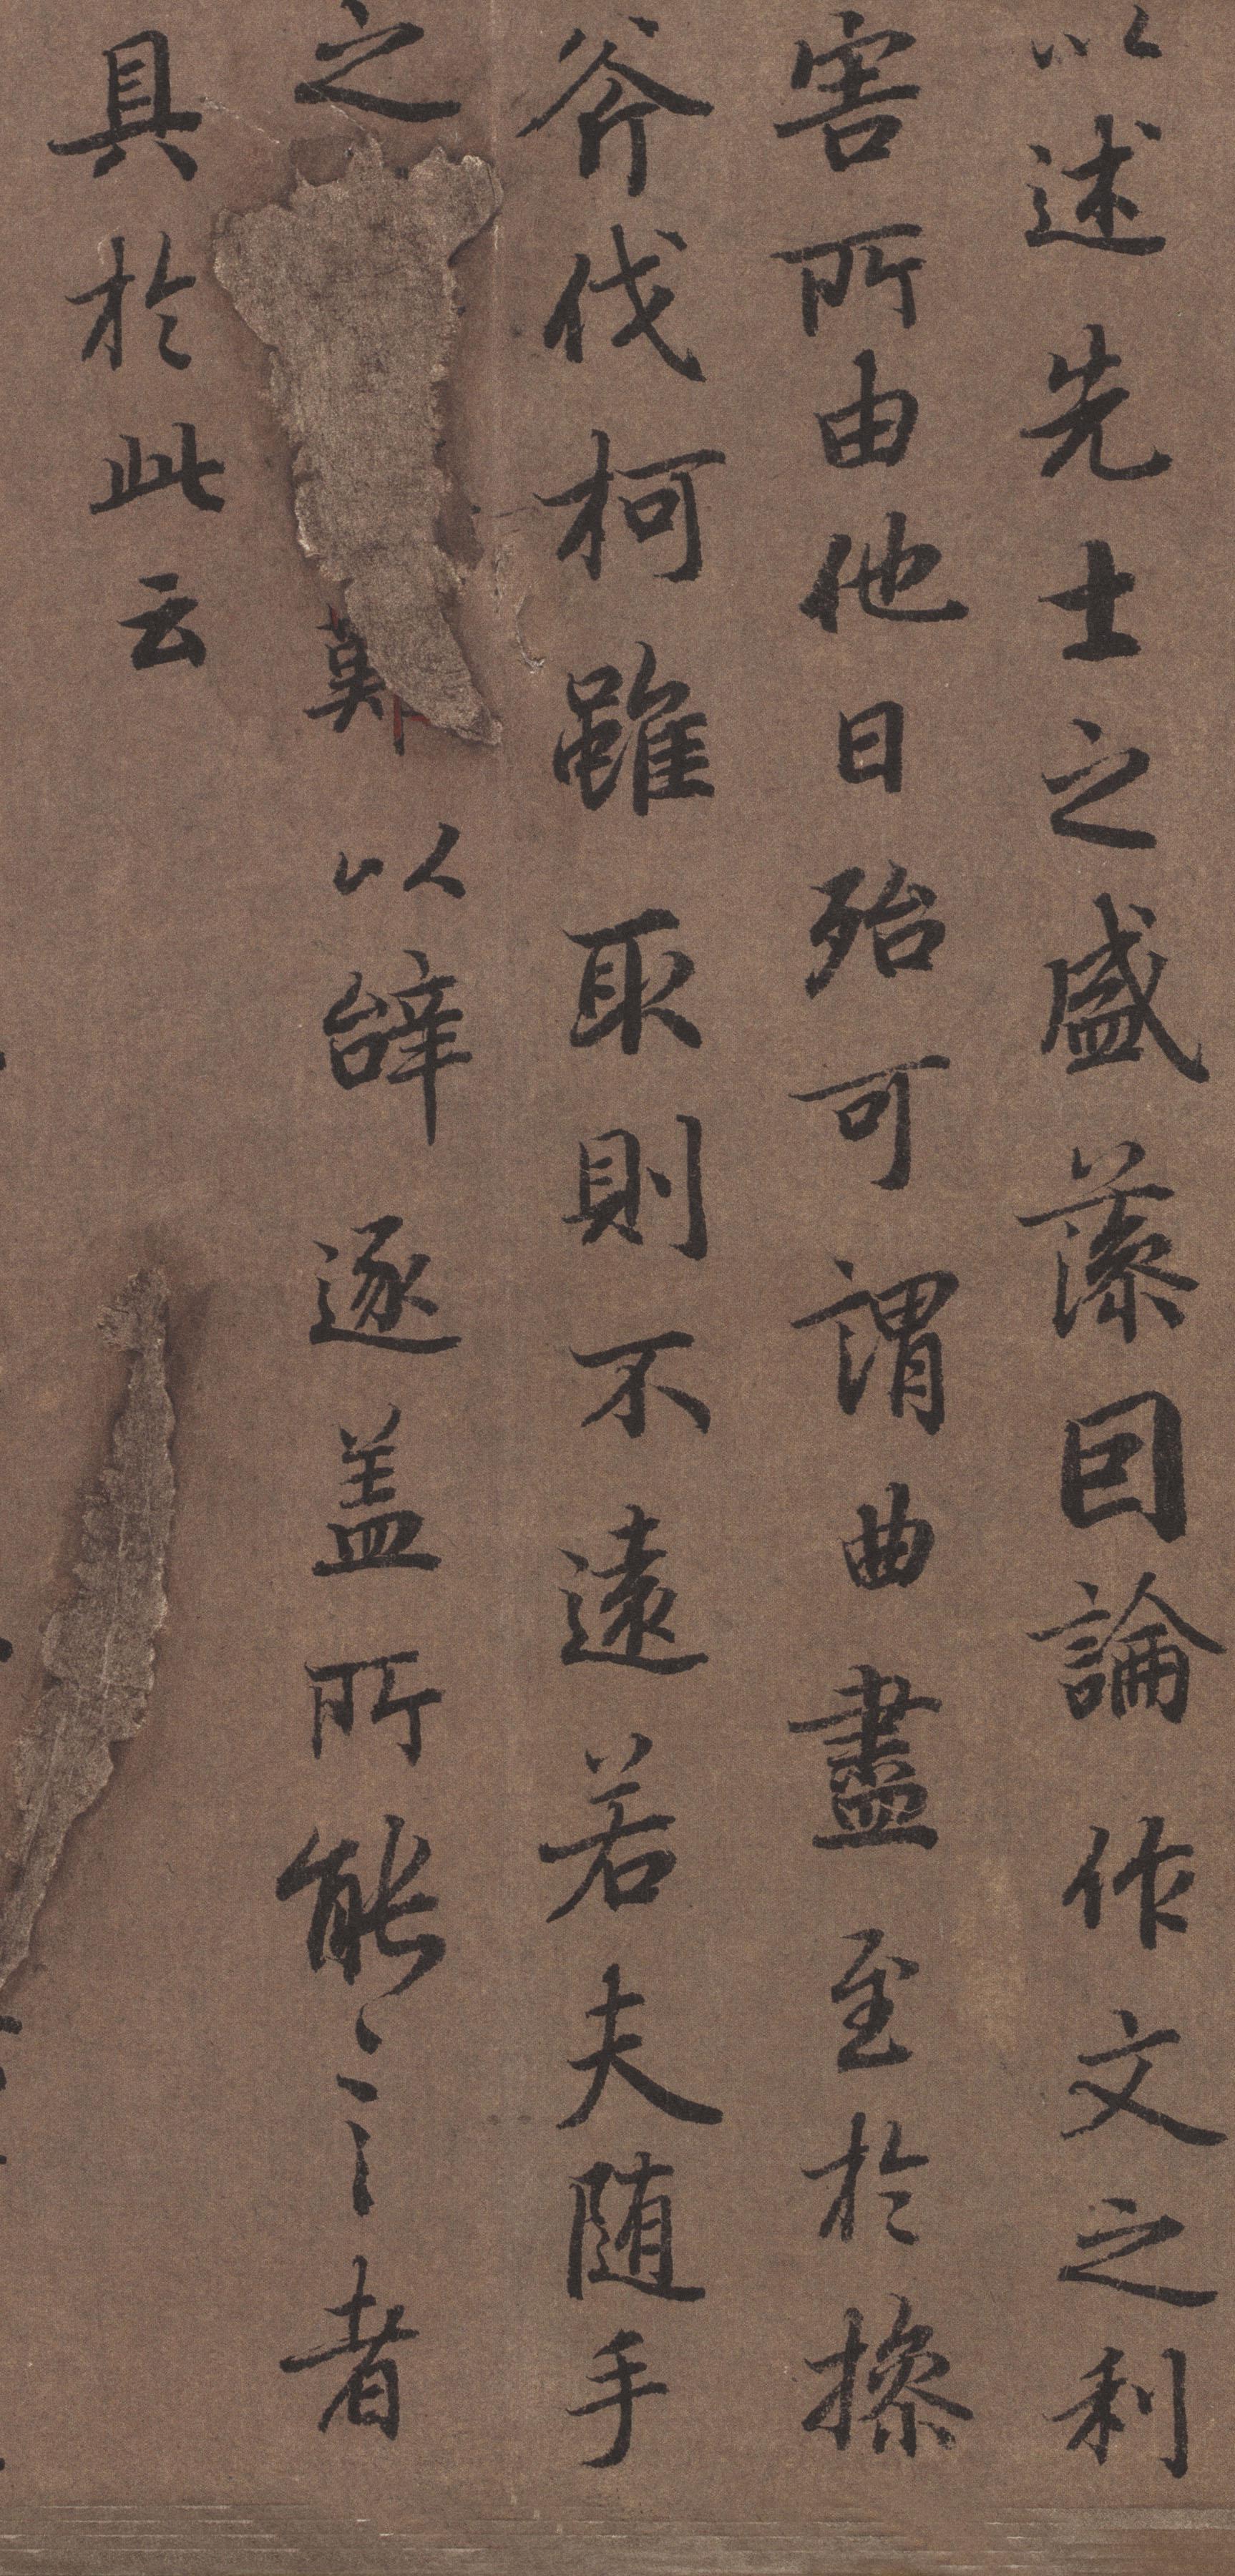 以述先士之盛藻因論作文之利
害所由他日殆可謂曲盡至於操
斧伐柯雖取則不遠若夫随手
之難以辝逐盖所能言者
具於此云